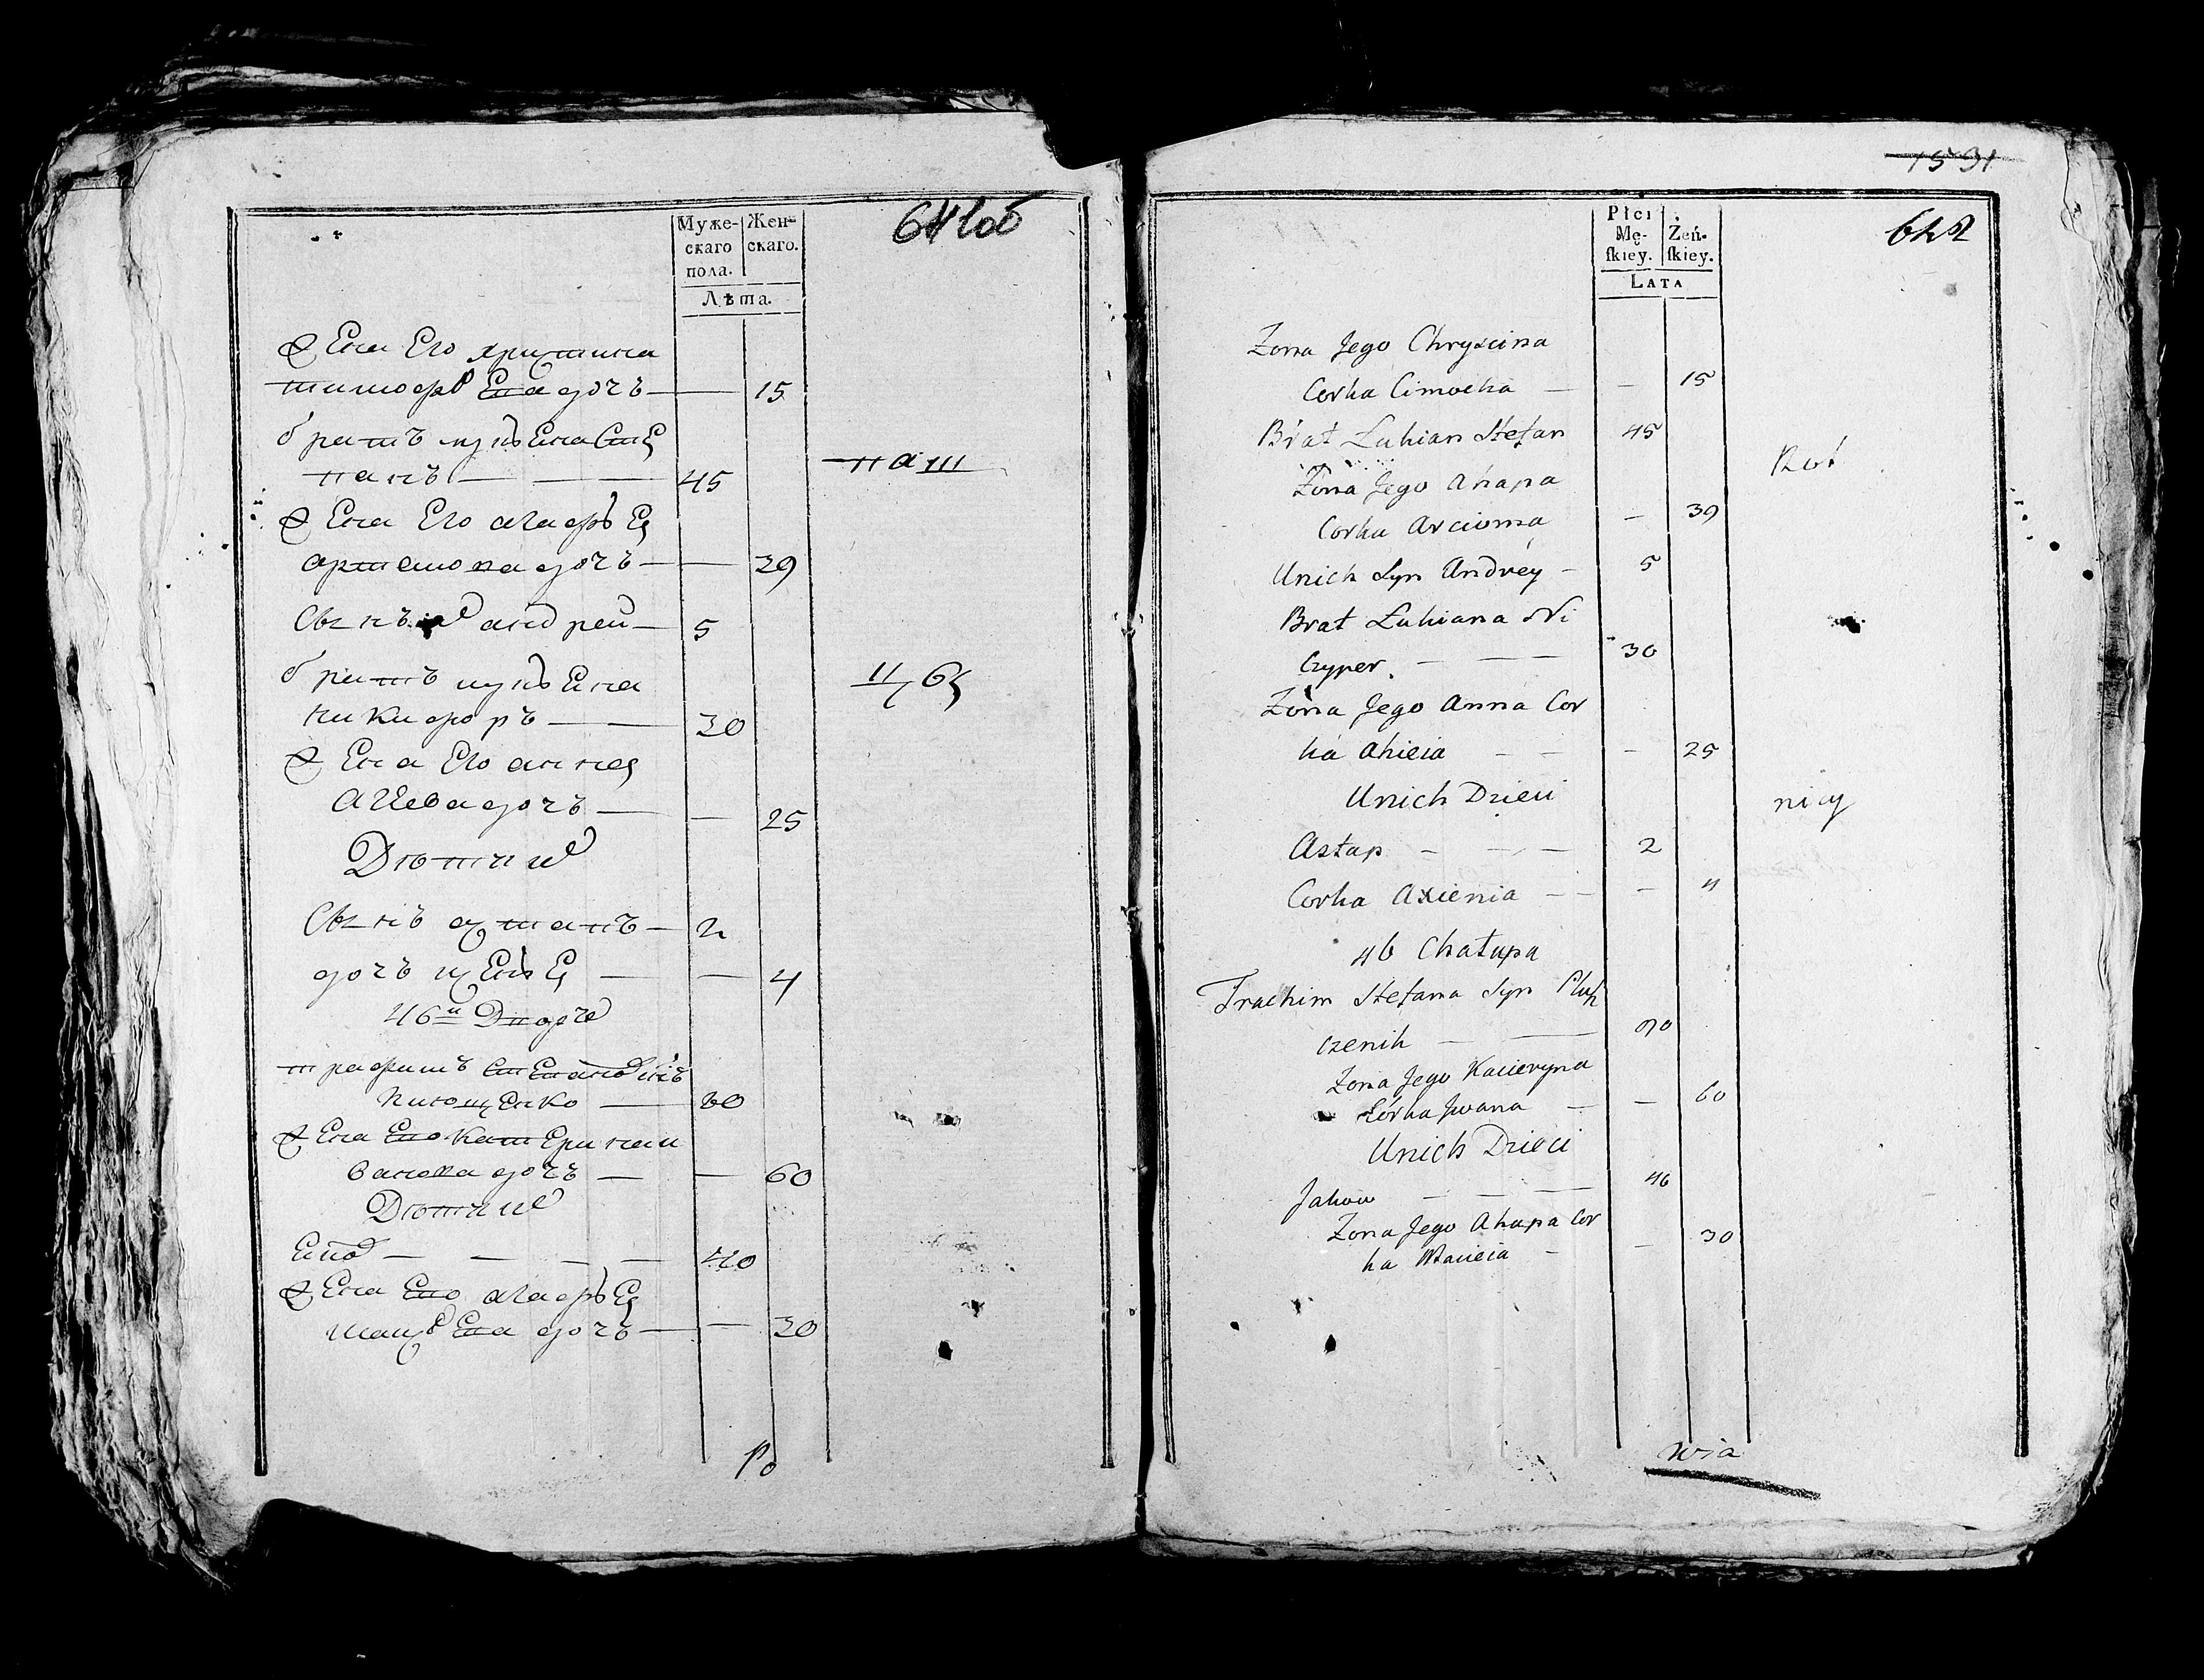 Муже-
скаго
пола.
Жен-
скаго.
Лѣта.
Жена Его христина
тимофѣева дочъ — — 15
братъ лукьена Сте
панъ — — — 45
пахат
Жена Его агафья
артемова дочъ — — 29
Сынъ андрей — 5
братъ лукьена
никифоръ — — 30
Жена Его анна
агѣева дочъ — — 25
Дѣти ихъ
Сынъ астапъ — 2
дочъ — — 4
46й Дворъ
трафимъ Степановъ сынъ
— 80
Жена Его Катерина и
ванова дочъ — — 60
Дѣти ихъ
— — — — 40
Жена Его агафья
дочъ — — 30
Ро
1591
642
Płci
Mę-
ſkiey.
Żeń-
ſkiey.
LATA
Zona Jego Chryscina
Corka Cimocha — — 15
Brat Łukian Stefan 45
Rot
Zona Jego Ahapa
Corka Arcioma — 39
Unich Syn Andréy - 5
Brat Łukiana Ni
czyper. — — — 30
Zona Jego Anna Cor
ka Ahieia — — — 25
Unich Dzieci
nicy
Astap — — — 2
Corka Axienia — — — 4
46 Chałupa
Trachim Stefana Syn
czenik — —
Zona Jego Kacieryna
Córka Jwana — — 60
Unich Dzieci
Jakow — — — 46
Zona Jego Ahapa Cor
ka Macieia — — 30
wia